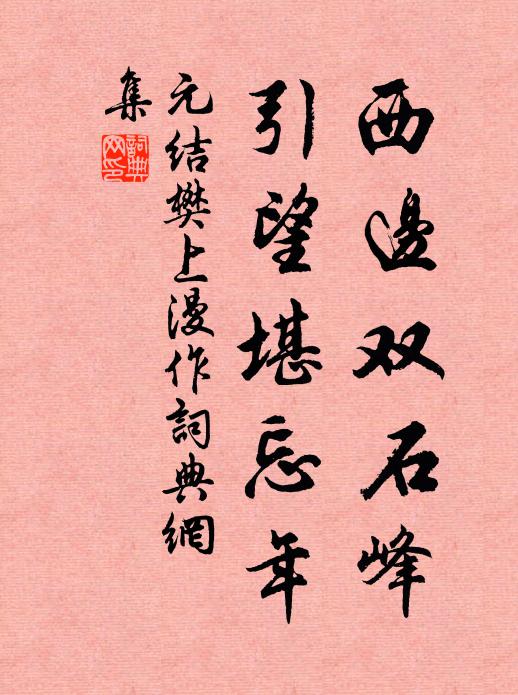 西邊双石峰
引望堪忘年
元结樊上漫作詞典網
集
詞典
网印